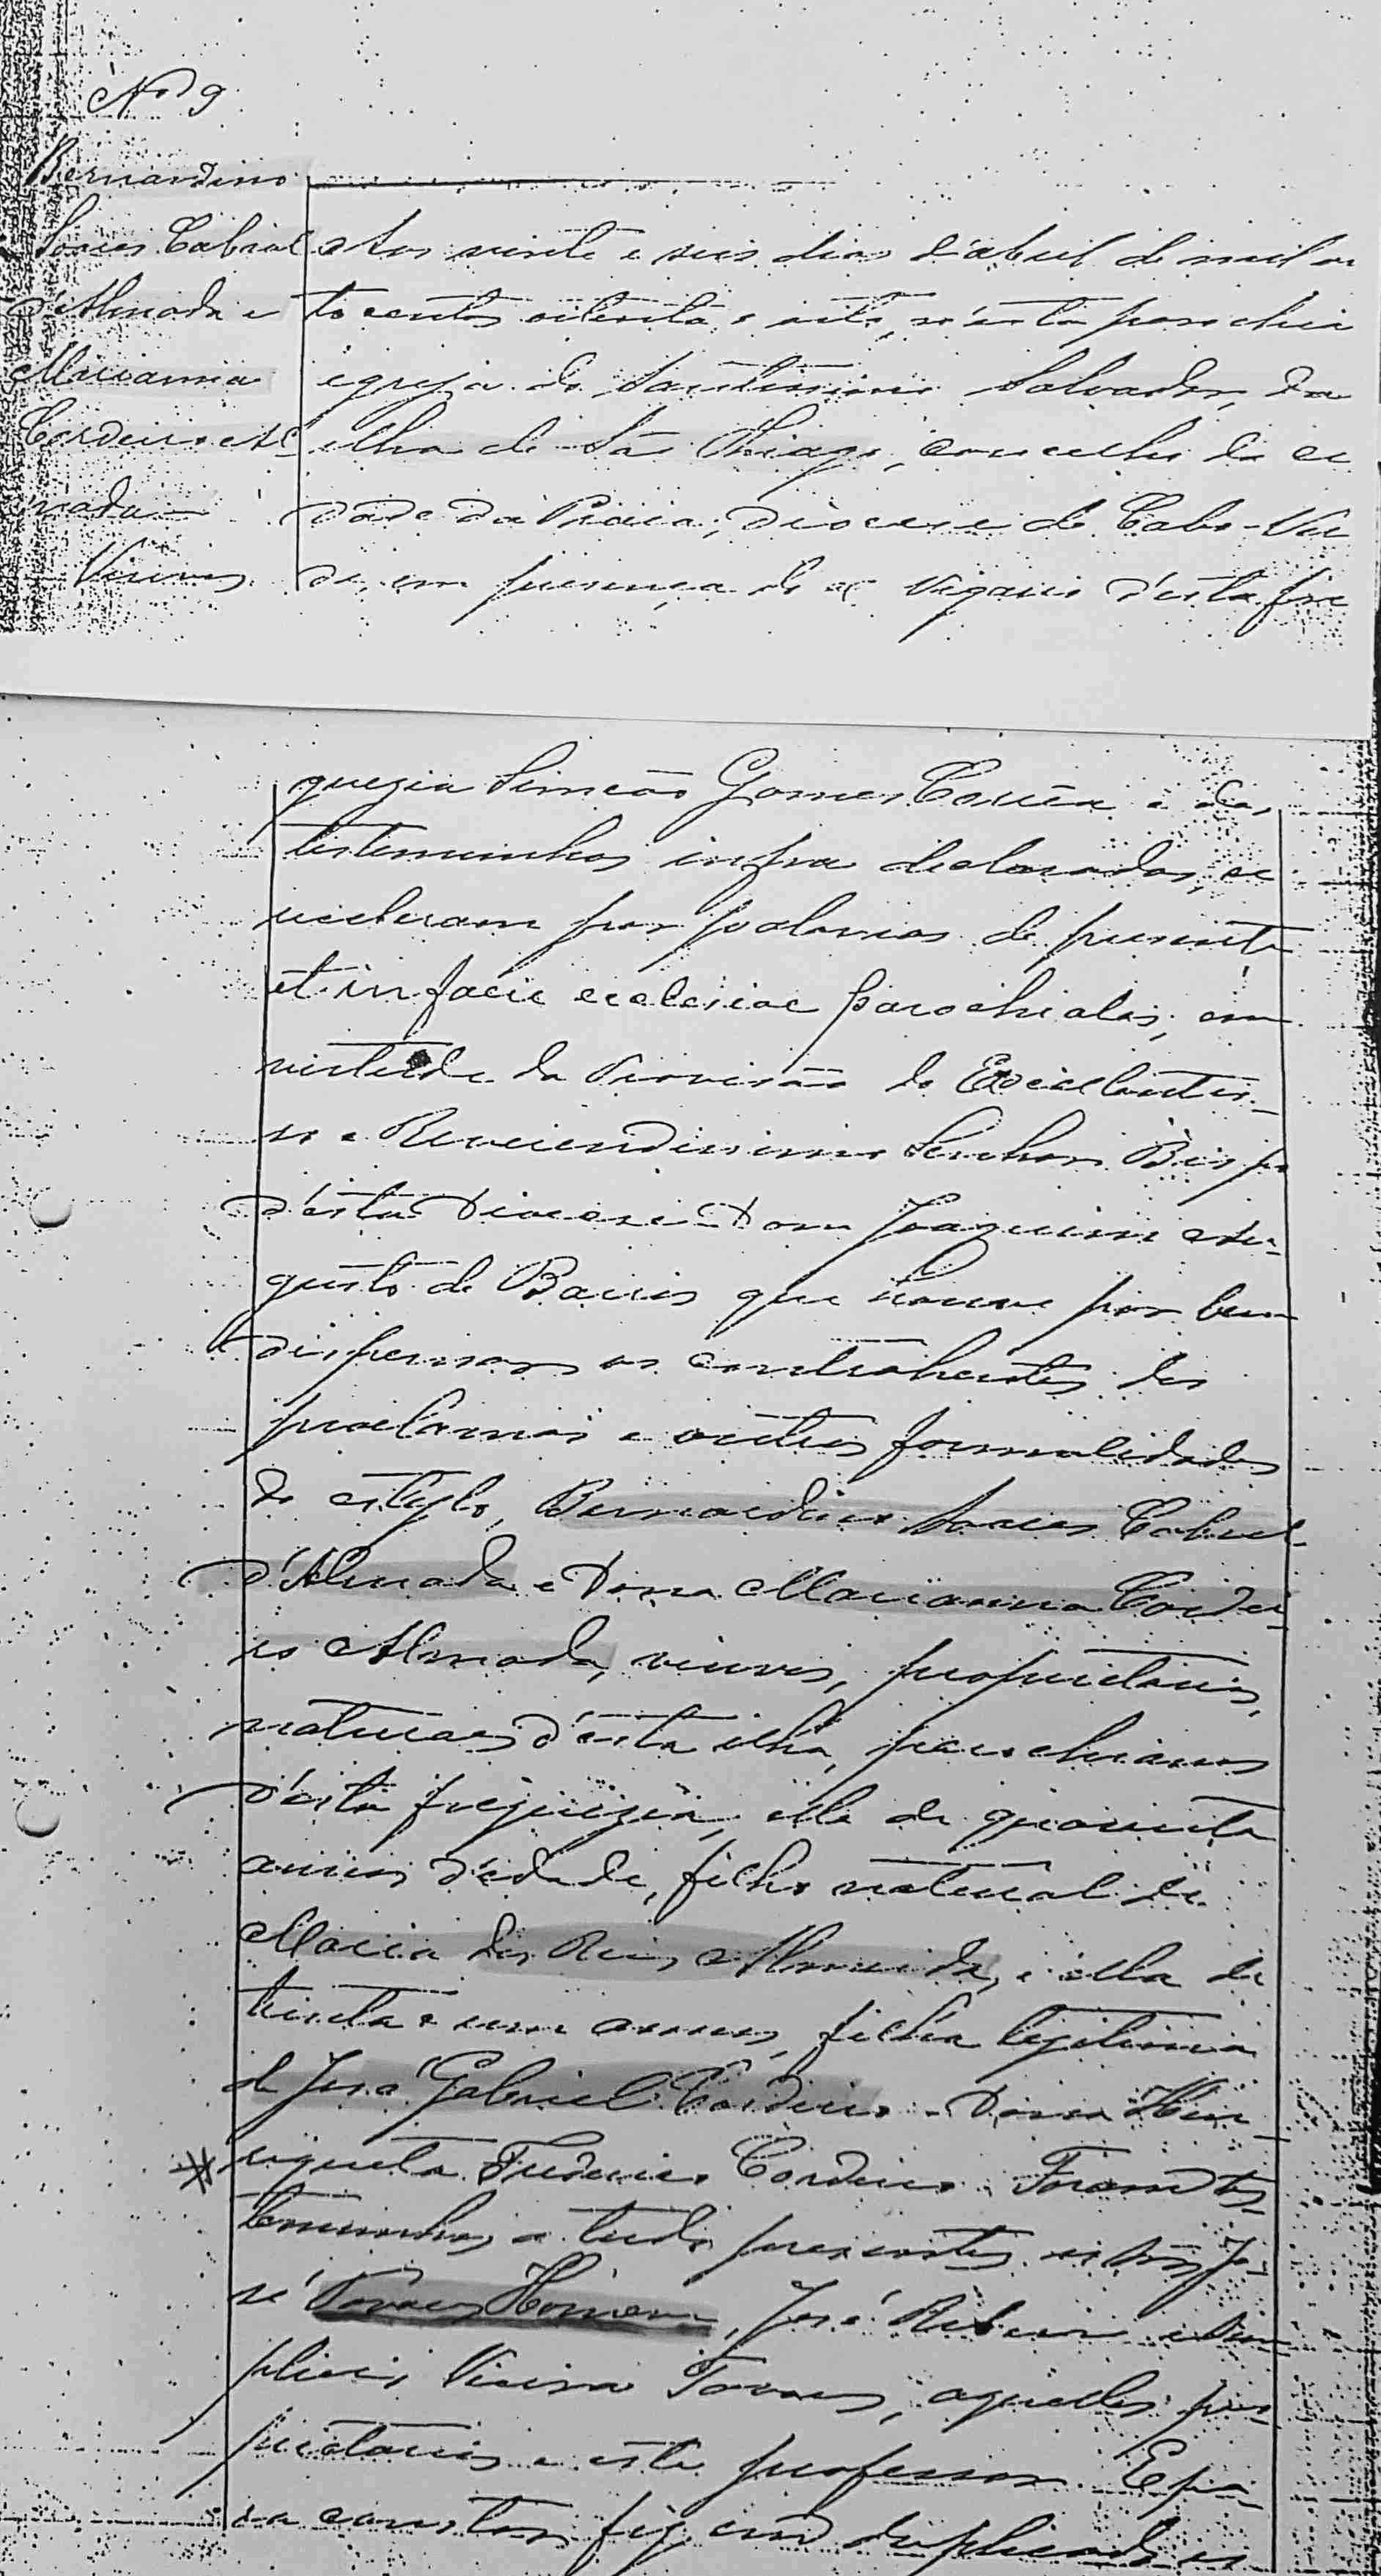 Nº 9
Bernardino
Soares Cabral
d'Almada e
Marianna
Cordeiro Al
mada
Viuvos
Aos vinte e seis dias d'abril de mil oi
to centos oitenta e oito, n'esta parochia
egreja do Santissimo Salvador, da
ilha de São Thiago, concelho da ci
dade da Praia, diocese de Cabo-Ver
de, em presença do vigario d'esta fre
guezia Simeão Gomes Corrêa e das
testemunhas infra declaradas, se
receberam por palavras de presente
et in facie ecclesiae parochiales, em
virtude da Provisão do Excellentis-
so e Reverendissimo Senhor Bispo
d'esta Diocese Dom Joaquim Au-
gusto de Barros que houve por bem
dispensar os contrahentes dos
proclamas e outras formalidades
do estylo, Bernardino Soares Cabral
d'Almada e Dona Marianna Cordei
ro Almada, viuvos, proprietarios,
naturaes d'esta ilha, parochianos
d'esta freguezia, elle de quarenta
annos d'edade, filho natural de
Maria dos Reis Almeida, e ella de
trinta e um annos, filha legitima
de José Gabriel Cordeiro e Dona Hen
riqueta Frederico Cordeiro. Foram tes
temunhas a tudo presentes Jo
sé Tavares Homem, José e Sim
plicio Vieira Tavares, aquelles pro
prietarios e este professor. E pa
ra constar fiz em duplicado es